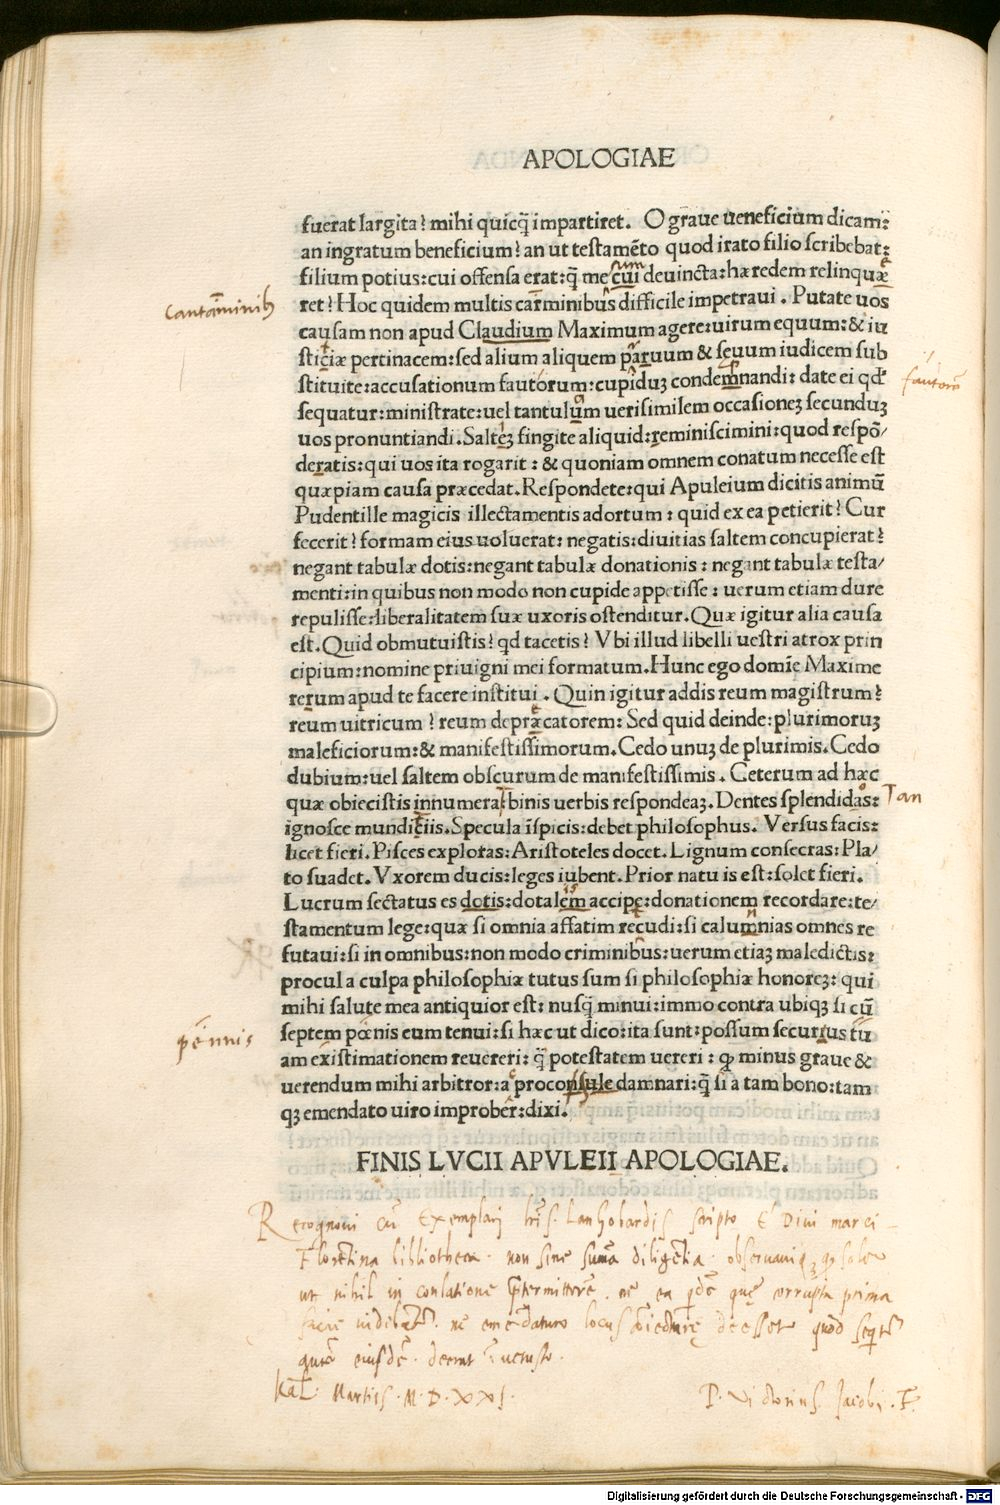 APOLOGIAE
fuerat largita? mihi quicq̃ impartiret. O graue ueneficium dicam:
an ingratum beneficium? an ut testamẽto quod irato filio scribebat:
filium potius: cui offensa erat: q̃ me cui deuincta: hæredem relinquæ
sum
e
ret? Hoc quidem multis carminibus difficile impetraui. Putate uos
cantãminib
causam non apud Claudium Maximum agere: uirum equum: & iu
sticiæ pertinacem: sed alium aliquem paruum & seuum iudicem sub
stituite: accusationum fautorum: cupiduȝ condemnandi: date ei qđ
sequatur: ministrate: uel tantulum uerisimilem occasioneȝ secunduȝ
uos pronuntiandi. Salteȝ fingite aliquid: reminiscimini: quod respõ/
deratis: qui uos ita rogarit: & quoniam omnem conatum necesse est
quæpiam causa præcedat. Respondete: qui Apuleium dicitis animũ
Pudentille magicis illectamentis adortum: quid ex ea petierit? Cur
fecerit? formam eius uoluerat: negatis: diuitias saltem concupierat?
negant tabulæ dotis: negant tabulæ donationis: negant tabulæ testa/
menti: in quibus non modo non cupide appetisse: uerum etiam dure
repulisse: liberalitatem suæ uxoris ostenditur. Quæ igitur alia causa
est. Quid obmutuistis? qd tacetis? Vbi illud libelli uestri atrox prin
cipium: nomine priuigni mei formatum. Hunc ego domĩe Maxime
rerum apud te facere institui. Quin igitur addis reum magistrum?
reum uitricum? reum depræcatorem: Sed quid deinde: plurimoruȝ
maleficiorum: & manifestissimorum. Cedo unuȝ de plurimis. Cedo
dubium: uel saltem obscurum de manifestissimis. Ceterum ad hæc
quæ obiecistis innumera binis uerbis respondeaȝ. Dentes splendidas:
Tan
ignosce mundiciis. Specula ĩspicis: debet philosophus. Versus facis:
licet fieri. Pisces exploras: Aristoteles docet. Lignum consecras: Pla/
to suadet. Vxorem ducis: leges iubent. Prior natu is est: solet fieri.
Lucrum sectatus es dotis: dotalem accipe: donationem recordare: te/
is
stamentum lege: quæ si omnia affatim recudi: si calumnias omnes re
futaui: si in omnibus: non modo criminibus: uerum etiaȝ maledictis:
procul a culpa philosophiæ tutus sum si philosophiæ honoreȝ: qui
mihi salute mea antiquior est: nusq̃ minui: immo contra ubiqȝ si cũ
septem pœnis eum tenui: si hæc ut dico: ita sunt: possum securius tũ
pẽnnis
am existimationem reuereri: q̃ potestatem uereri: ꝙ minus graue &
uerendum mihi arbitror: a proconsule damnari: q̃ si a tam bono: tam
qȝ emendato uiro improber: dixi.
FINIS LVCII APVLEII APOLOGIAE.
Recognoui cũ Exemplari lr̃is Langobardis scripto E Diui marci
Florẽtina bibliotheca. non sine sũma diligẽtia. obseruauiqȝ ꝙ soleo
ut nihil in conlatione p̃termitterẽ. ne ea qdẽ quę corrupta prima
facie uideãtr̃. ne emẽdaturo locus cõiecturę deesset quod seqt̃r
eiusdẽ. deerat ĩ uetusto.
Kal. Martiis. M. D. XXI.
P. Victorius Jacobi. F.
Digitalisierung gefördert durch die Deutsche Forschungsgemeinschaft - DFG